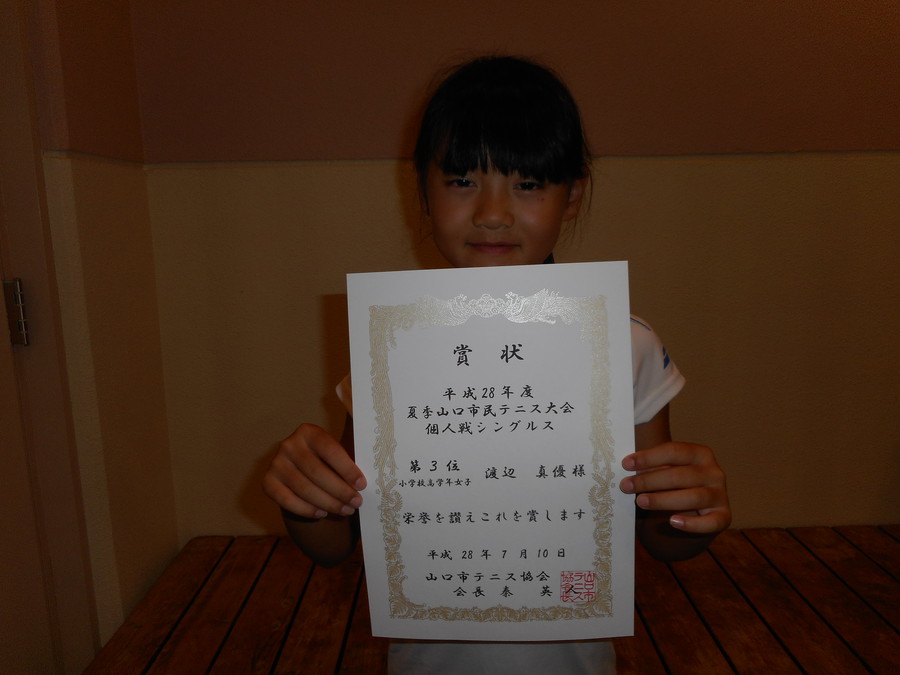 賞状
平成28年度
夏季山口市民テニス大会
個人戦シングルス
第3位 渡辺 真優様
小学校高学年女子
栄誉を讃えこれを賞します
平成28年7月10日
山口市テニス協会
会長 秦 英